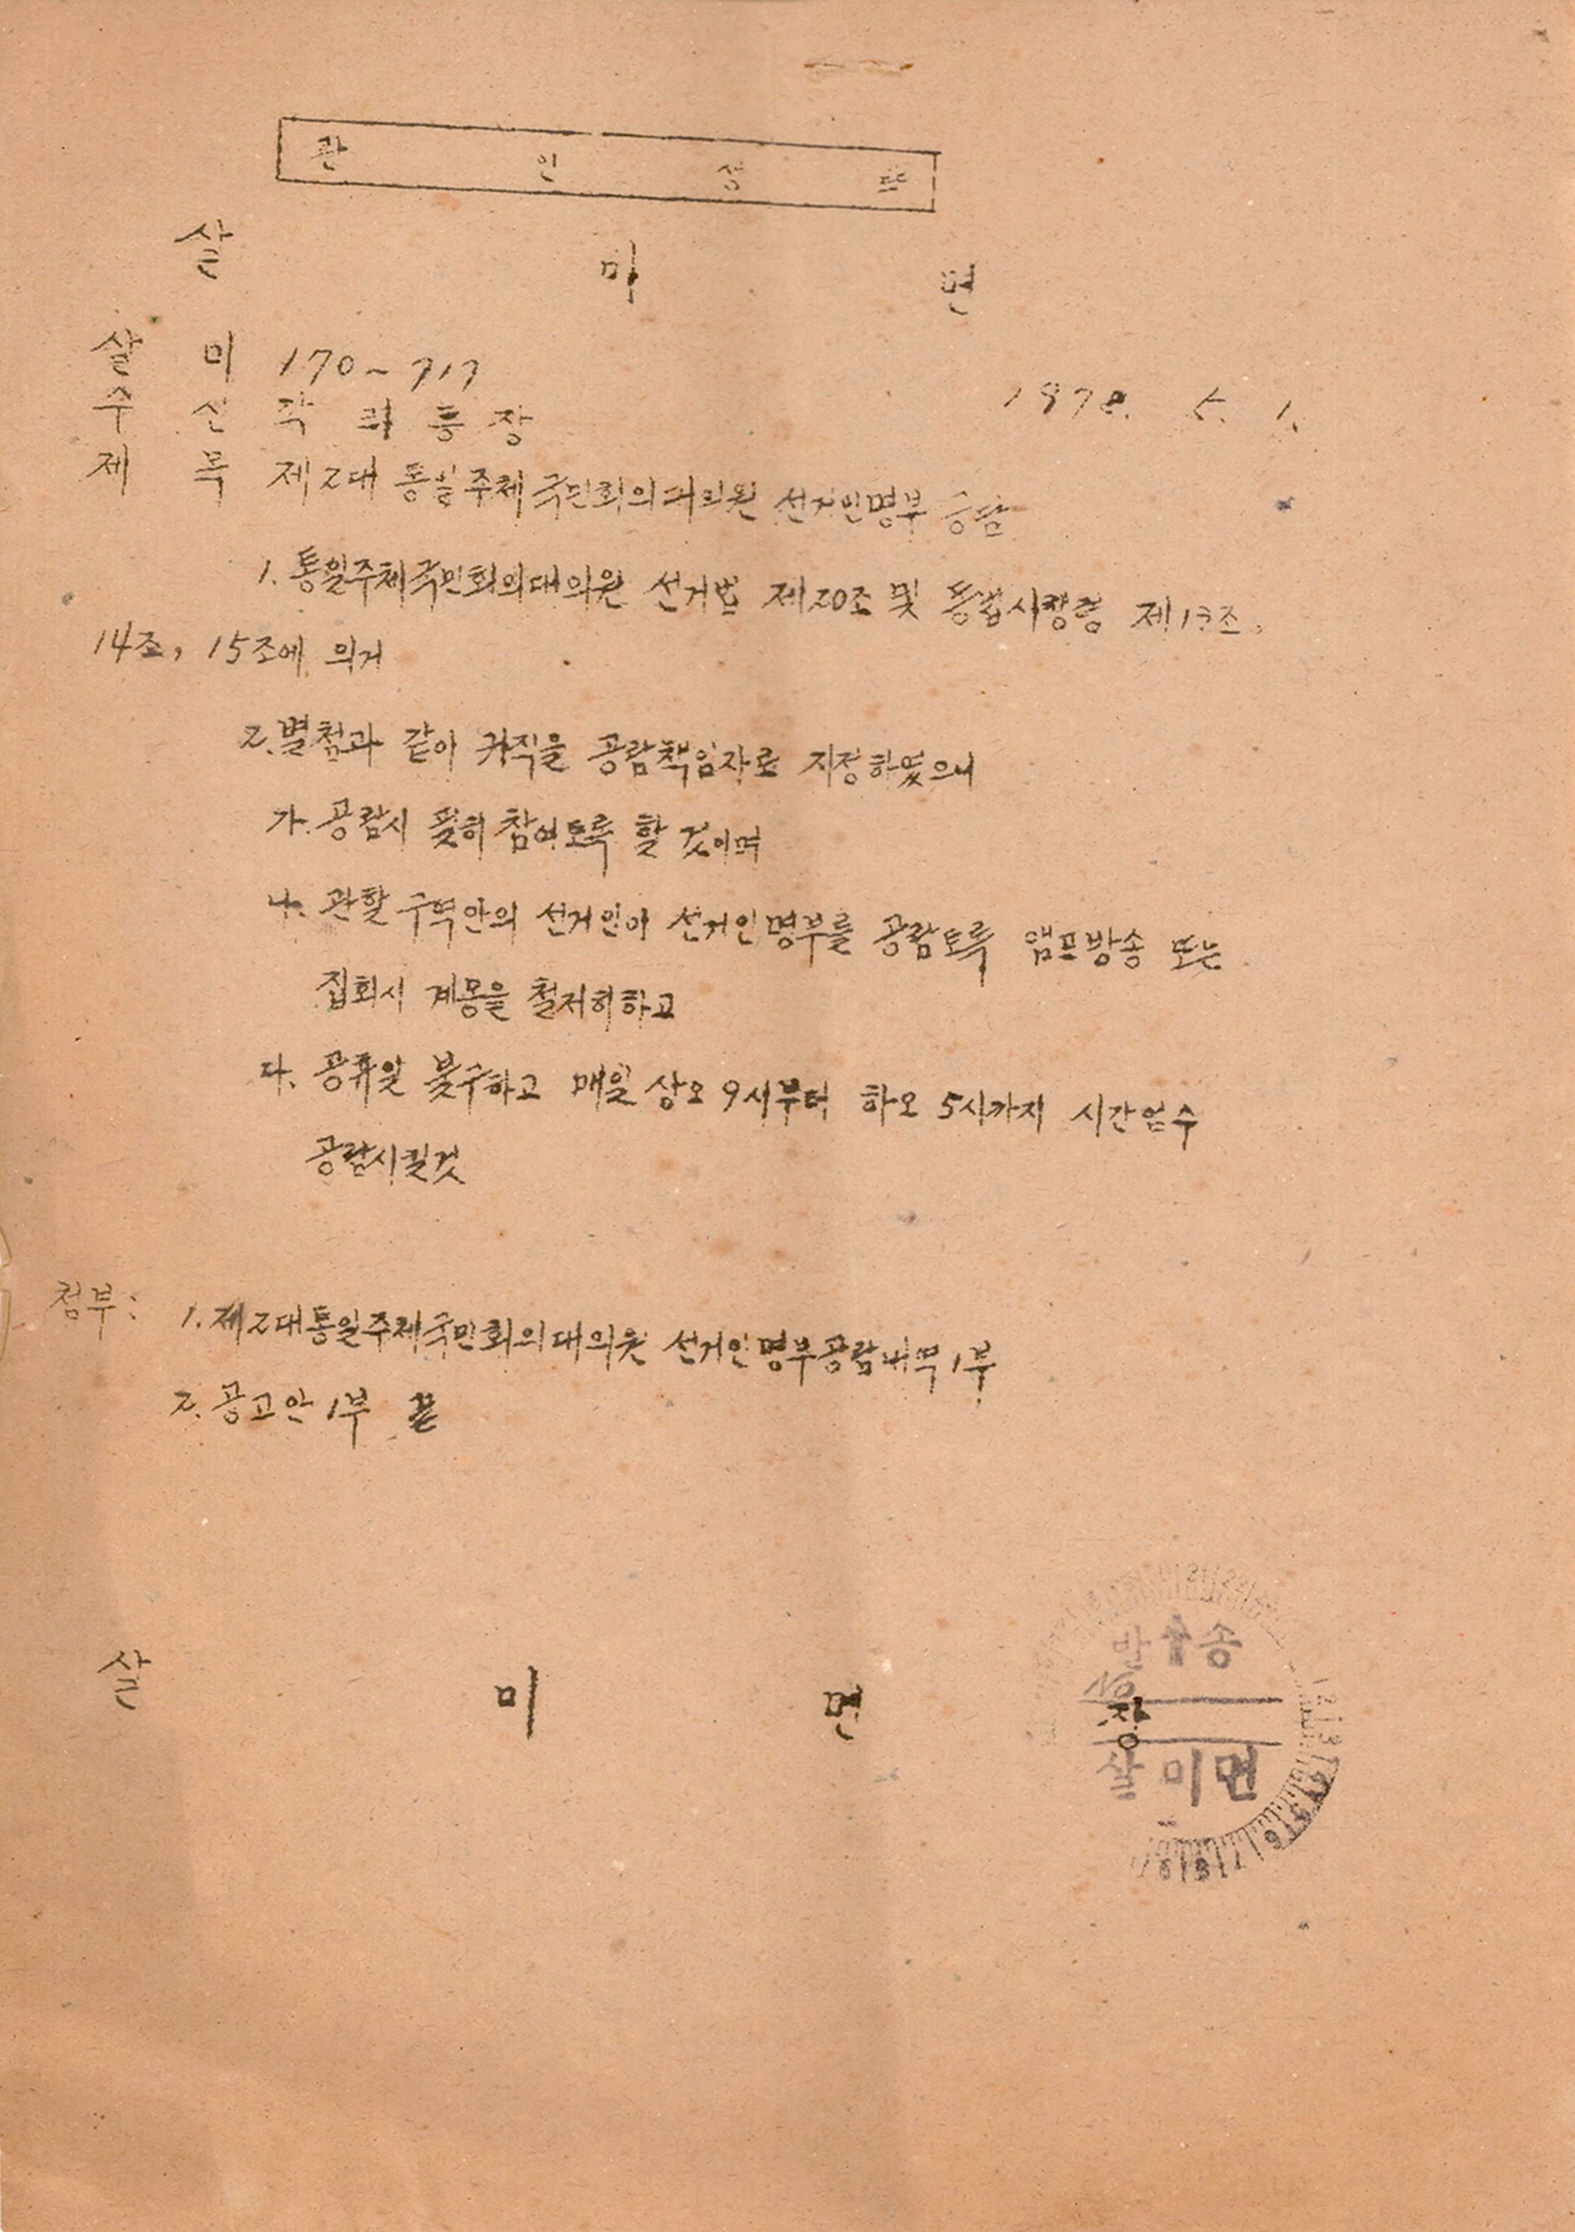 관 인 생 략
살 미 면
살 미 170~717
1978. 5. 1.
수 신 각 리 통 장
제 목 제2대 통일주체국민회의대의원 선거인명부 공람
1. 통일주체국민회의대의원 선거법 제20조 및 동법시행령 제13조,
14조, 15조에 의거
2. 별첨과 같이 귀직을 공람책임자로 지정하였으니
가. 공람시 필히 참여토록 할 것이며
나. 관할 구역안의 선거인이 선거인명부를 공람토록 앰프방송 또는
집회시 계몽을 철저히하고
다. 공휴일 불구하고 매일 상오 9시부터 하오 5시까지 시간엄수
공람시킬것
첨부: 1. 제2대통일주체국민회의대의원 선거인명부공람내역 1부
2. 공고안 1부 끝
살 미 면 장
발송
살미면